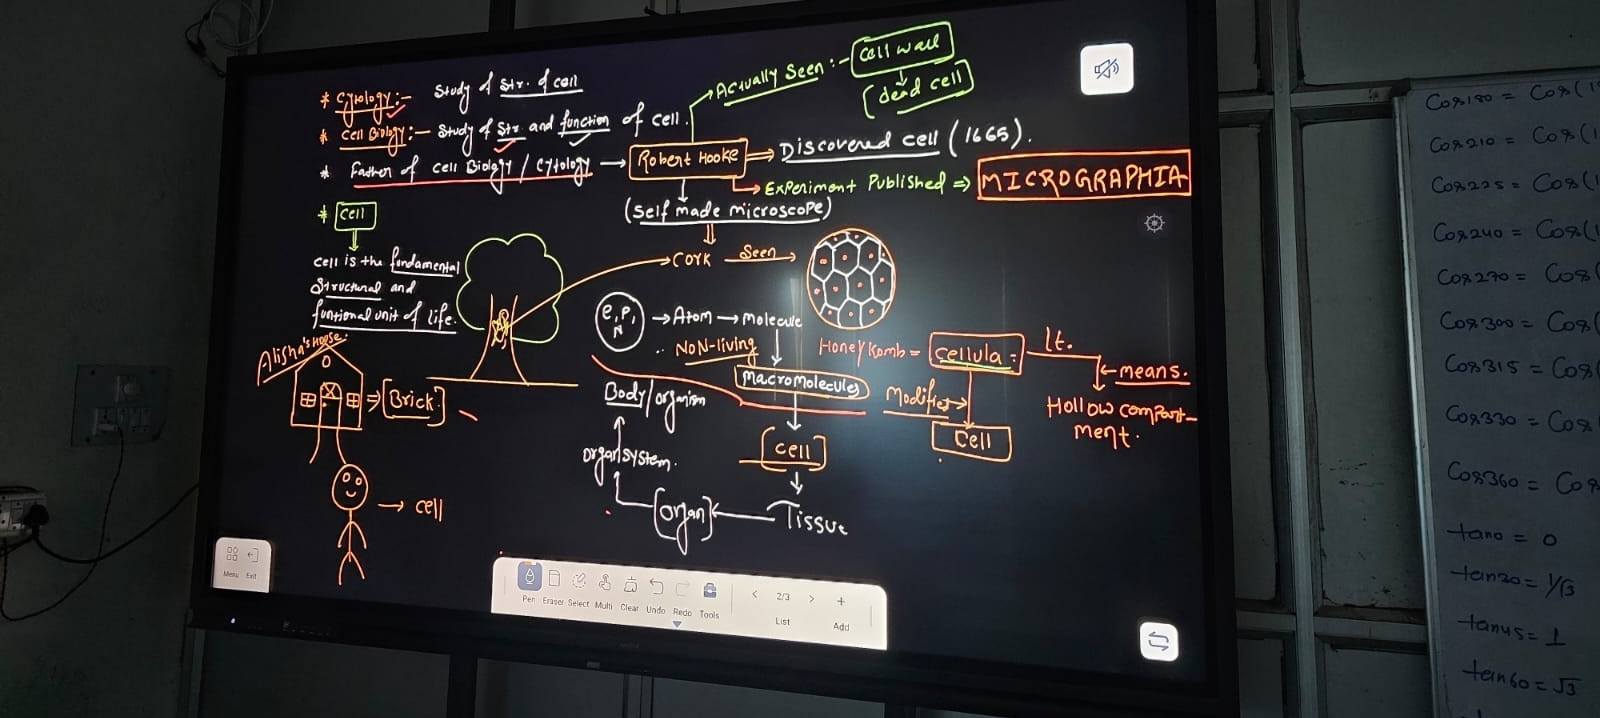 * Cytology :- Study of str. of cell
* Cell Biology :- Study of str and function of cell.
* Father of cell Biology / Cytology → Robert Hooke ⇒ Discovered cell (1665).
→ Actually Seen :- Cell wall
↓
(dead cell)
→ Experiment Published ⇒ MICROGRAPHIA
↓
(Self made microscope)
⇓
→ Cork Seen →
* Cell
⇓
Cell is the fundamental
Structural and
funtional unit of life.
e, P,
N
→ Atom → Molecule
Non-living
↓
Macromolecules
↓
[cell]
↓
Tissue
[organ]
organsystem.
Body/organism
Honey Komb = Cellula :- lt.
← means.
Hollow compart-
ment.
Modified →
Cell
Alisha's House.
⇒ [Brick]
→ cell
Menu Exit
Pen Eraser Select Multi Clear Undo Redo Tools
< 2/3 > +
List Add
Cos180 = Cos(1
Cos210 = Cos(1
Cos225 = Cos(1
Cos240 = Cos(
Cos270 = Cos(
Cos300 = Cos(
Cos315 = Cos(
Cos330 = Cos(
Cos360 = Cos
tan0 = 0
tan30 = 1/√3
tan45 = 1
tan60 = √3